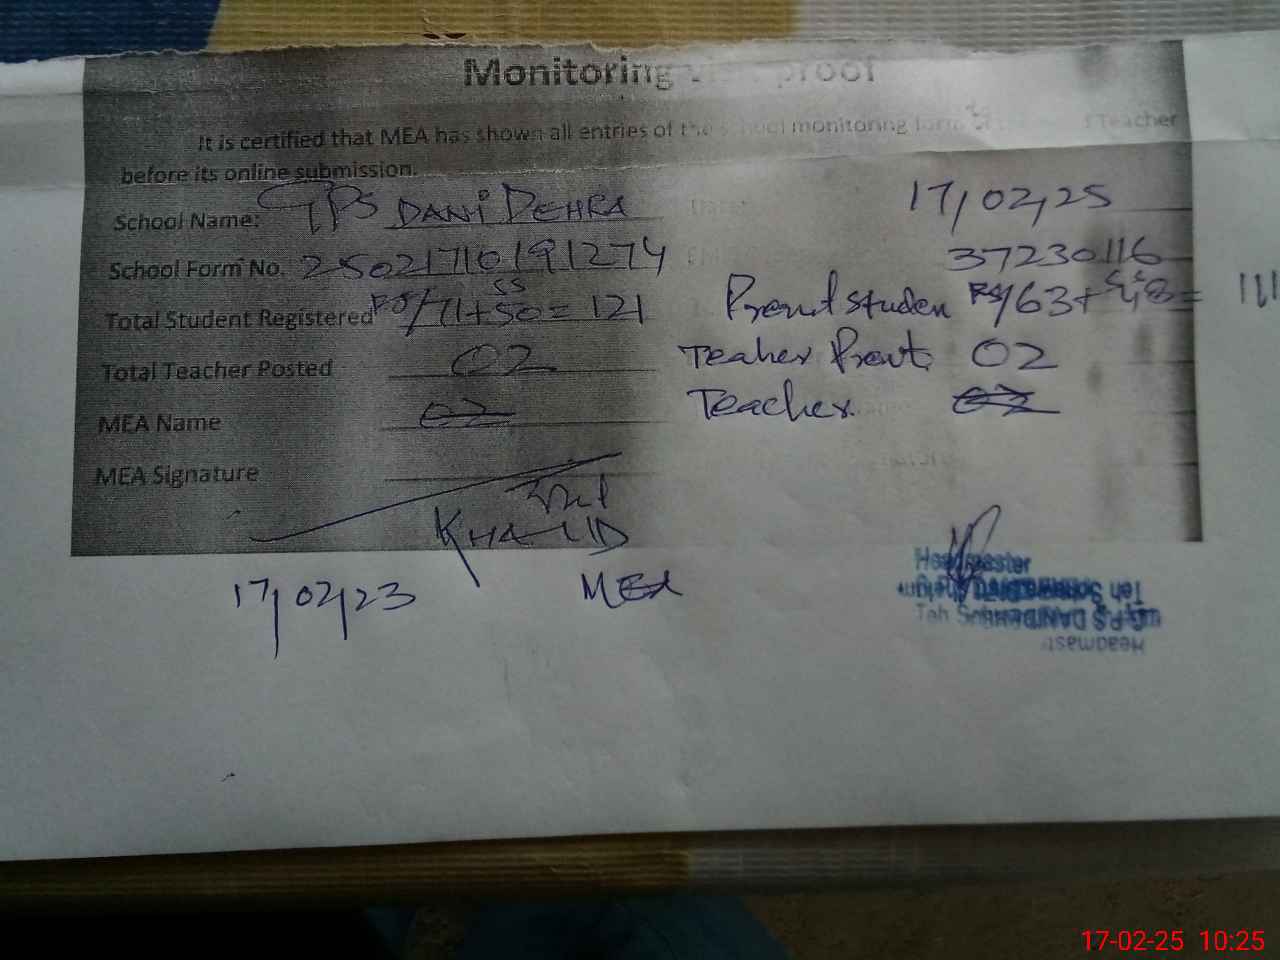 Monitoring proof
It is certified that MEA has shown all entries of the school monitoring form Teacher
before its online submission.
School Name: GPS DANI DEHRA Date: 17/02/25
School Form No. 25021710191274 37230116
Total Student Registered 71+50= 121 Student 63+48= 111
SS
Total Teacher Posted 02 Teaher 02
MEA Name 02 Teacher 02
MEA Signature
KHALID
17/02/23 MEA
Headmaster
17-02-25 10:25